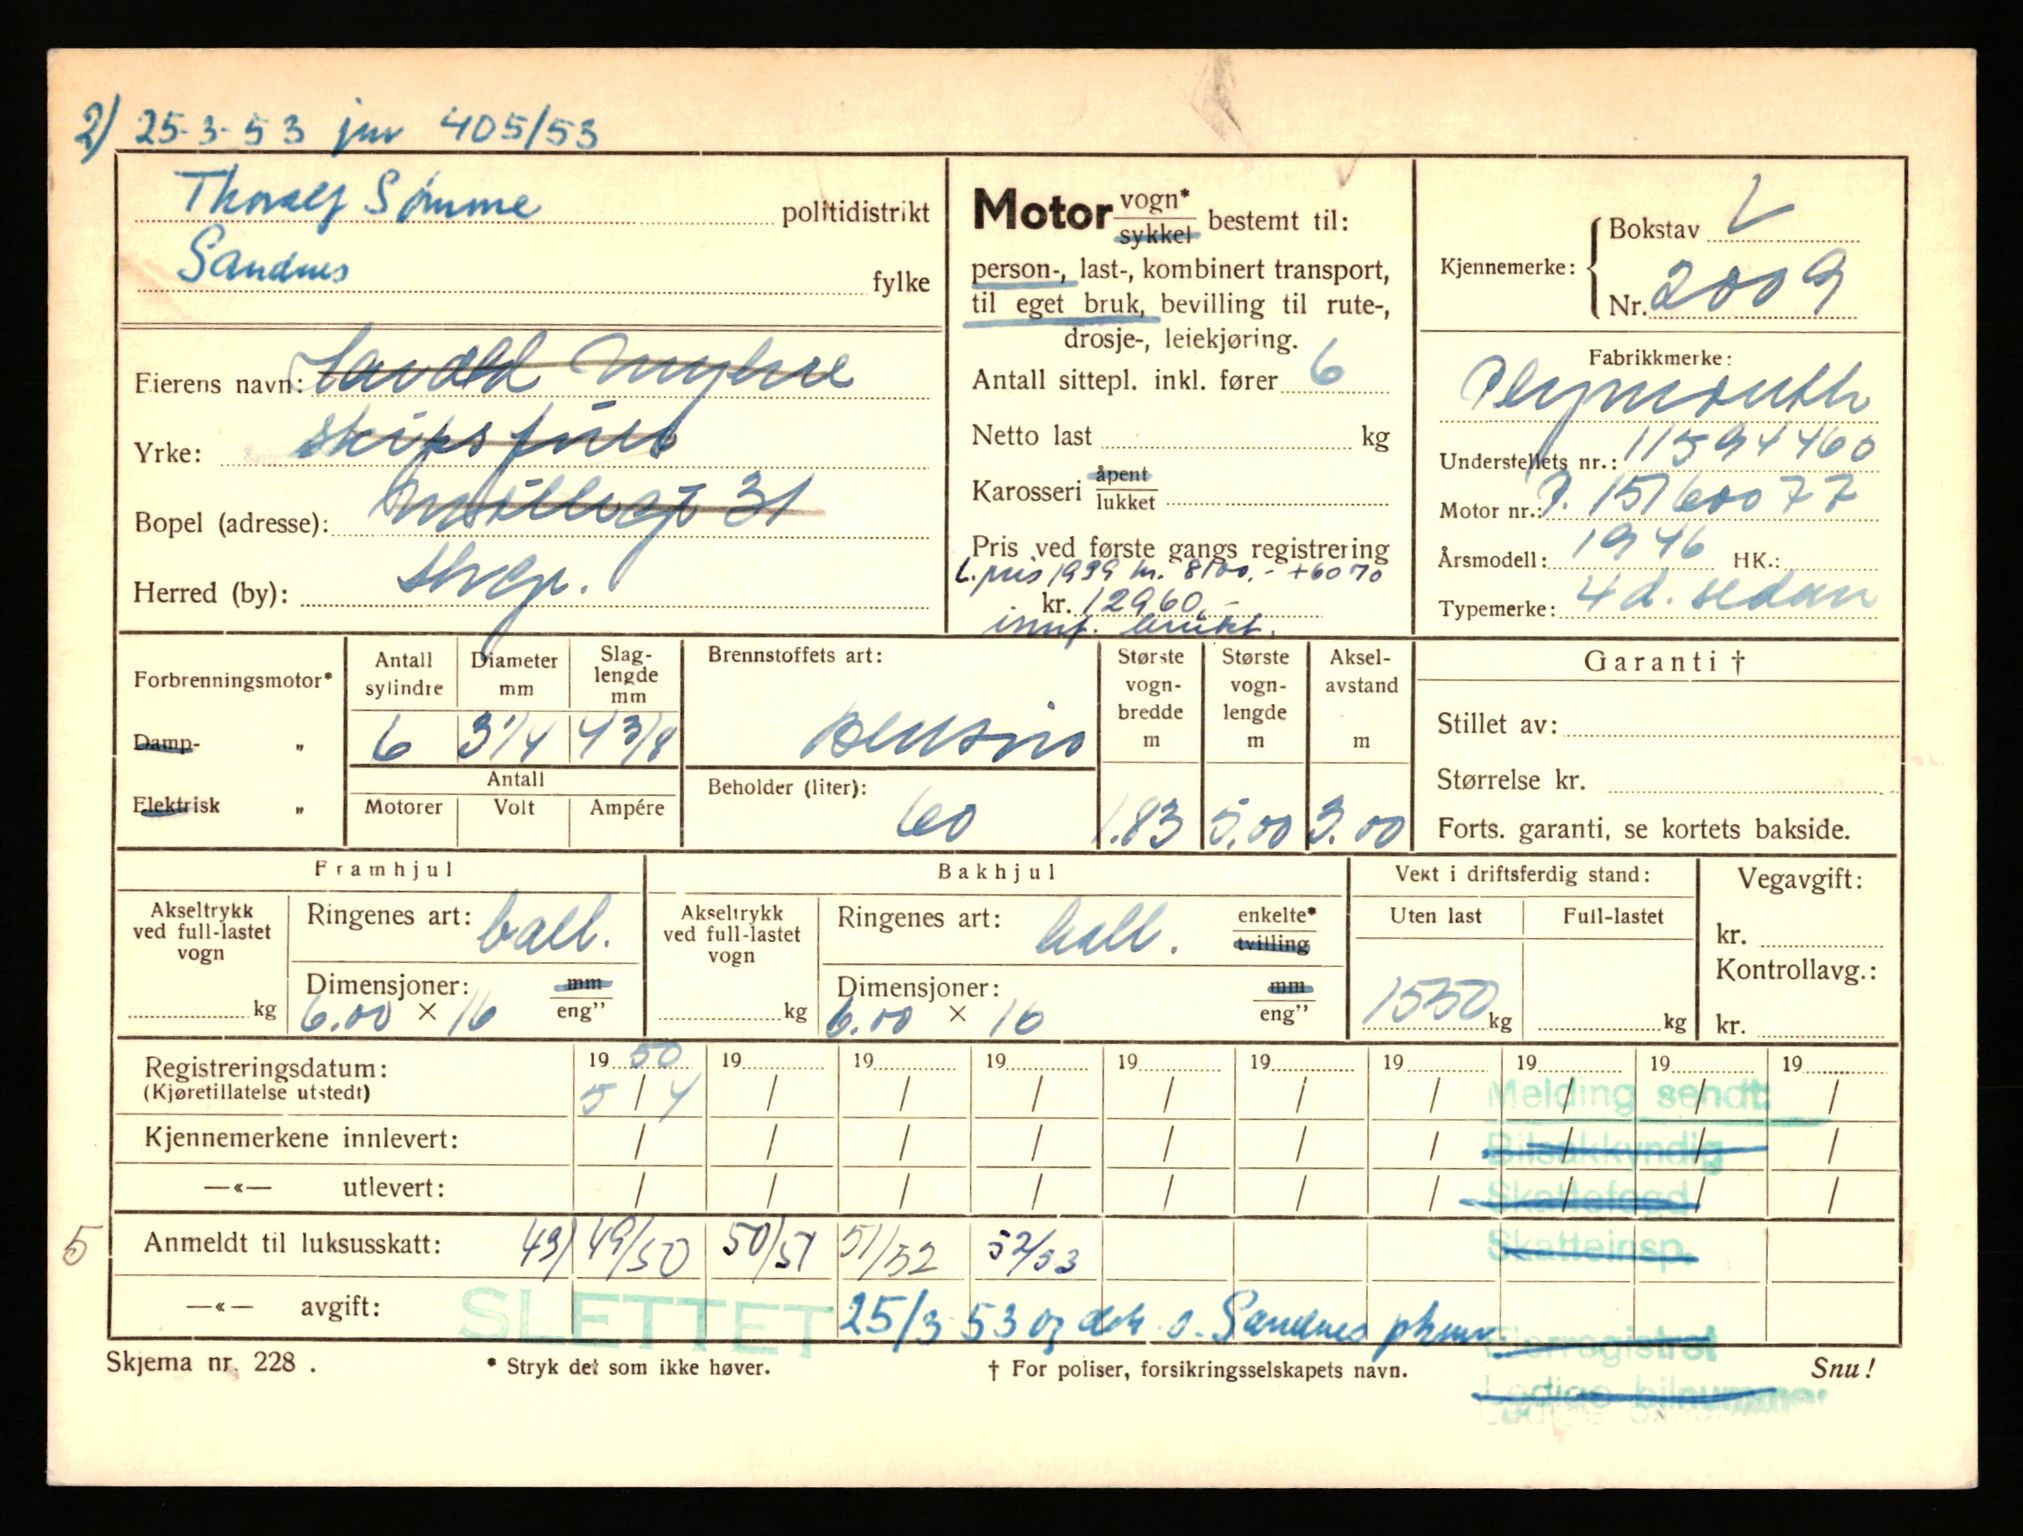 2) 25-3-53 jnr 405/53
Thoralf Sømme politidistrikt
Sandnes fylke
Eierens navn: Harald Myhre
Yrke: skipsfører
Bopel (adresse): Møllegt 31
Herred (by): Stvgr.
Motor vogn* sykkel bestemt til:
person-, last-, kombinert transport,
til eget bruk, bevilling til rute-,
drosje-, leiekjøring.
Antall sittepl. inkl. fører 6
Netto last kg
Karosseri åpent lukket
Pris ved første gangs registrering
L.pris 1939 kr. 8100.- + 60 70
kr. 12960.-
innf. brukt.
Kjennemerke: Bokstav L
Nr. 2009
Fabrikkmerke:
Plymouth
Understellets nr.: 11594460
Motor nr.: P. 15160077
Årsmodell: 1946 HK.:
Typemerke: 4 d. sedan
Forbrenningsmotor*
Damp- „
Elektrisk „
Antall sylindre 6
Diameter mm 3 1/4
Slaglengde mm 4 3/8
Antall
Motorer Volt Ampére
Brennstoffets art:
Bensin
Beholder (liter):
60
Største vognbredde m 1.83
Største vognlengde m 5.00
Akselavstand m 3.00
Garanti †
Stillet av:
Størrelse kr.
Forts. garanti, se kortets bakside.
Framhjul
Akseltrykk ved full-lastet vogn kg
Ringenes art: ball.
Dimensjoner: mm
6.00 × 16 eng”
Bakhjul
Akseltrykk ved full-lastet vogn kg
Ringenes art: ball. enkelte* tvilling
Dimensjoner: mm
6.00 × 16 eng”
Vekt i driftsferdig stand:
Uten last Full-lastet
1550 kg kg
Vegavgift:
kr.
Kontrollavg.:
kr.
Registreringsdatum: 19 50 19 19 19 19 19 19 19 19 19
(Kjøretillatelse utstedt) 5 / 4 / / / / / / / / /
Melding sendt:
Kjennemerkene innlevert: / / / / / / / / / /
Bilsakkyndig
—«— utlevert: / / / / / / / / / /
Skattefogd
5 Anmeldt til luksusskatt: 49/ 49/50 50/51 51/52 52/53
Skatteinsp.
—«— avgift:
SLETTET
25/3 53 og dek. o. Sandnes pkmr.
Eierregistret
Skjema nr. 228 . * Stryk det som ikke høver. † For poliser, forsikringsselskapets navn. Snu!
Ledige bilnummer